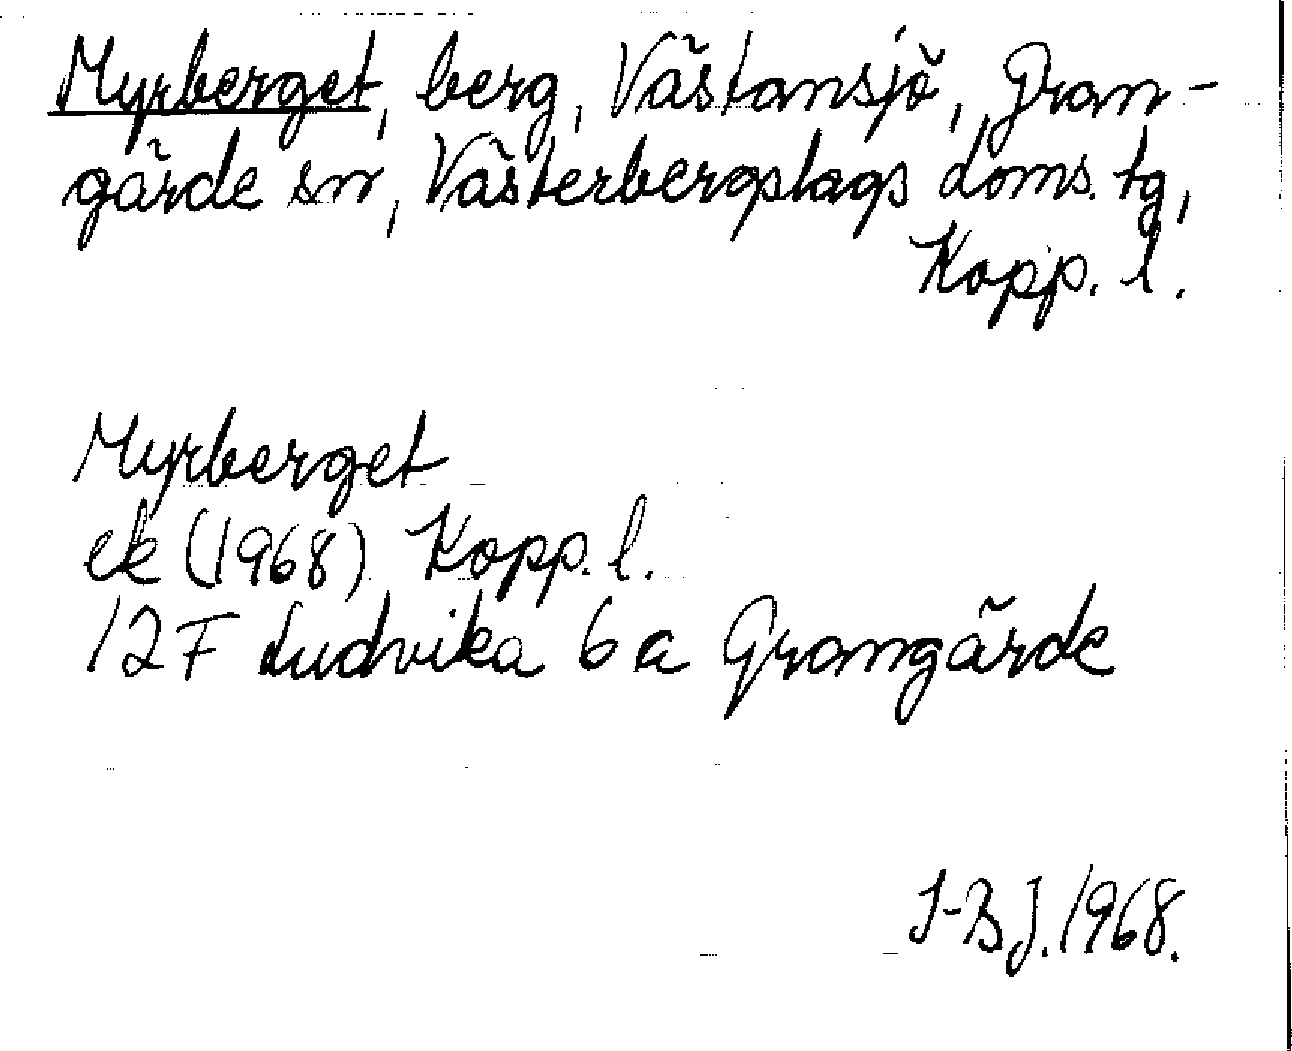 Myrberget, berg, Västansjö, Gran-
gärde sn, Västerbergslags doms. tg,
Kopp. l.
Myrberget
ek (1968) Kopp. l.
12F Ludvika 6a Grangärde
I-B J. 1968.